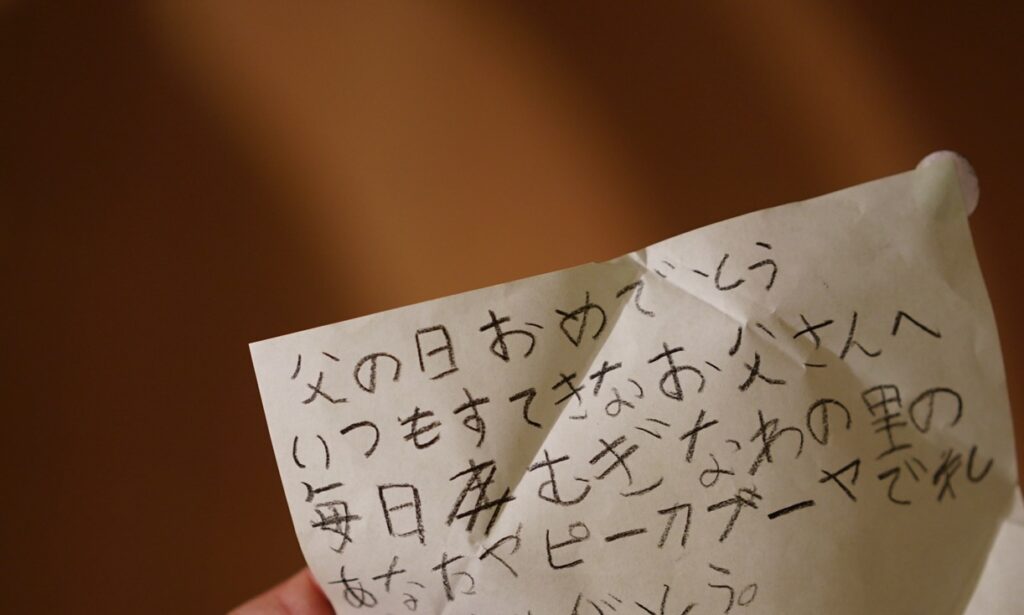 父の日おめでとう
いつもすてきなお父さんへ
毎日 むぎなわの里の
あなたやピーカブーヤで
がとう。